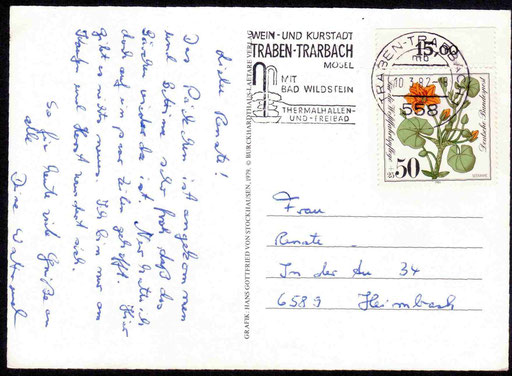 Liebe Renate!
Das Päckchen ist angekommen
und Bettina sehr froh, daß das
wieder da ist. Nur hatte ich
doch auf ein paar Zeilen gehofft. Hier
gibt es nichts neues. Ich bin nur am
und
So für heute viele Grüße an
alle
Deine
GRAFIK: HANS GOTTFRIED VON STOCKHAUSEN, 1979. © BURCKHARDTHAUS-LAETARE VERLAG
WEIN- UND KURSTADT
TRABEN-TRARBACH
MOSEL
MIT
BAD WILDSTEIN
THERMALHALLEN-
UND-FREIBAD
15,00
TRABEN-TRARBACH
mb
10.3.82
558
Deutsche Bundespost
50
+25
Frau
Renate
In der Au 34
6589 Heimbach